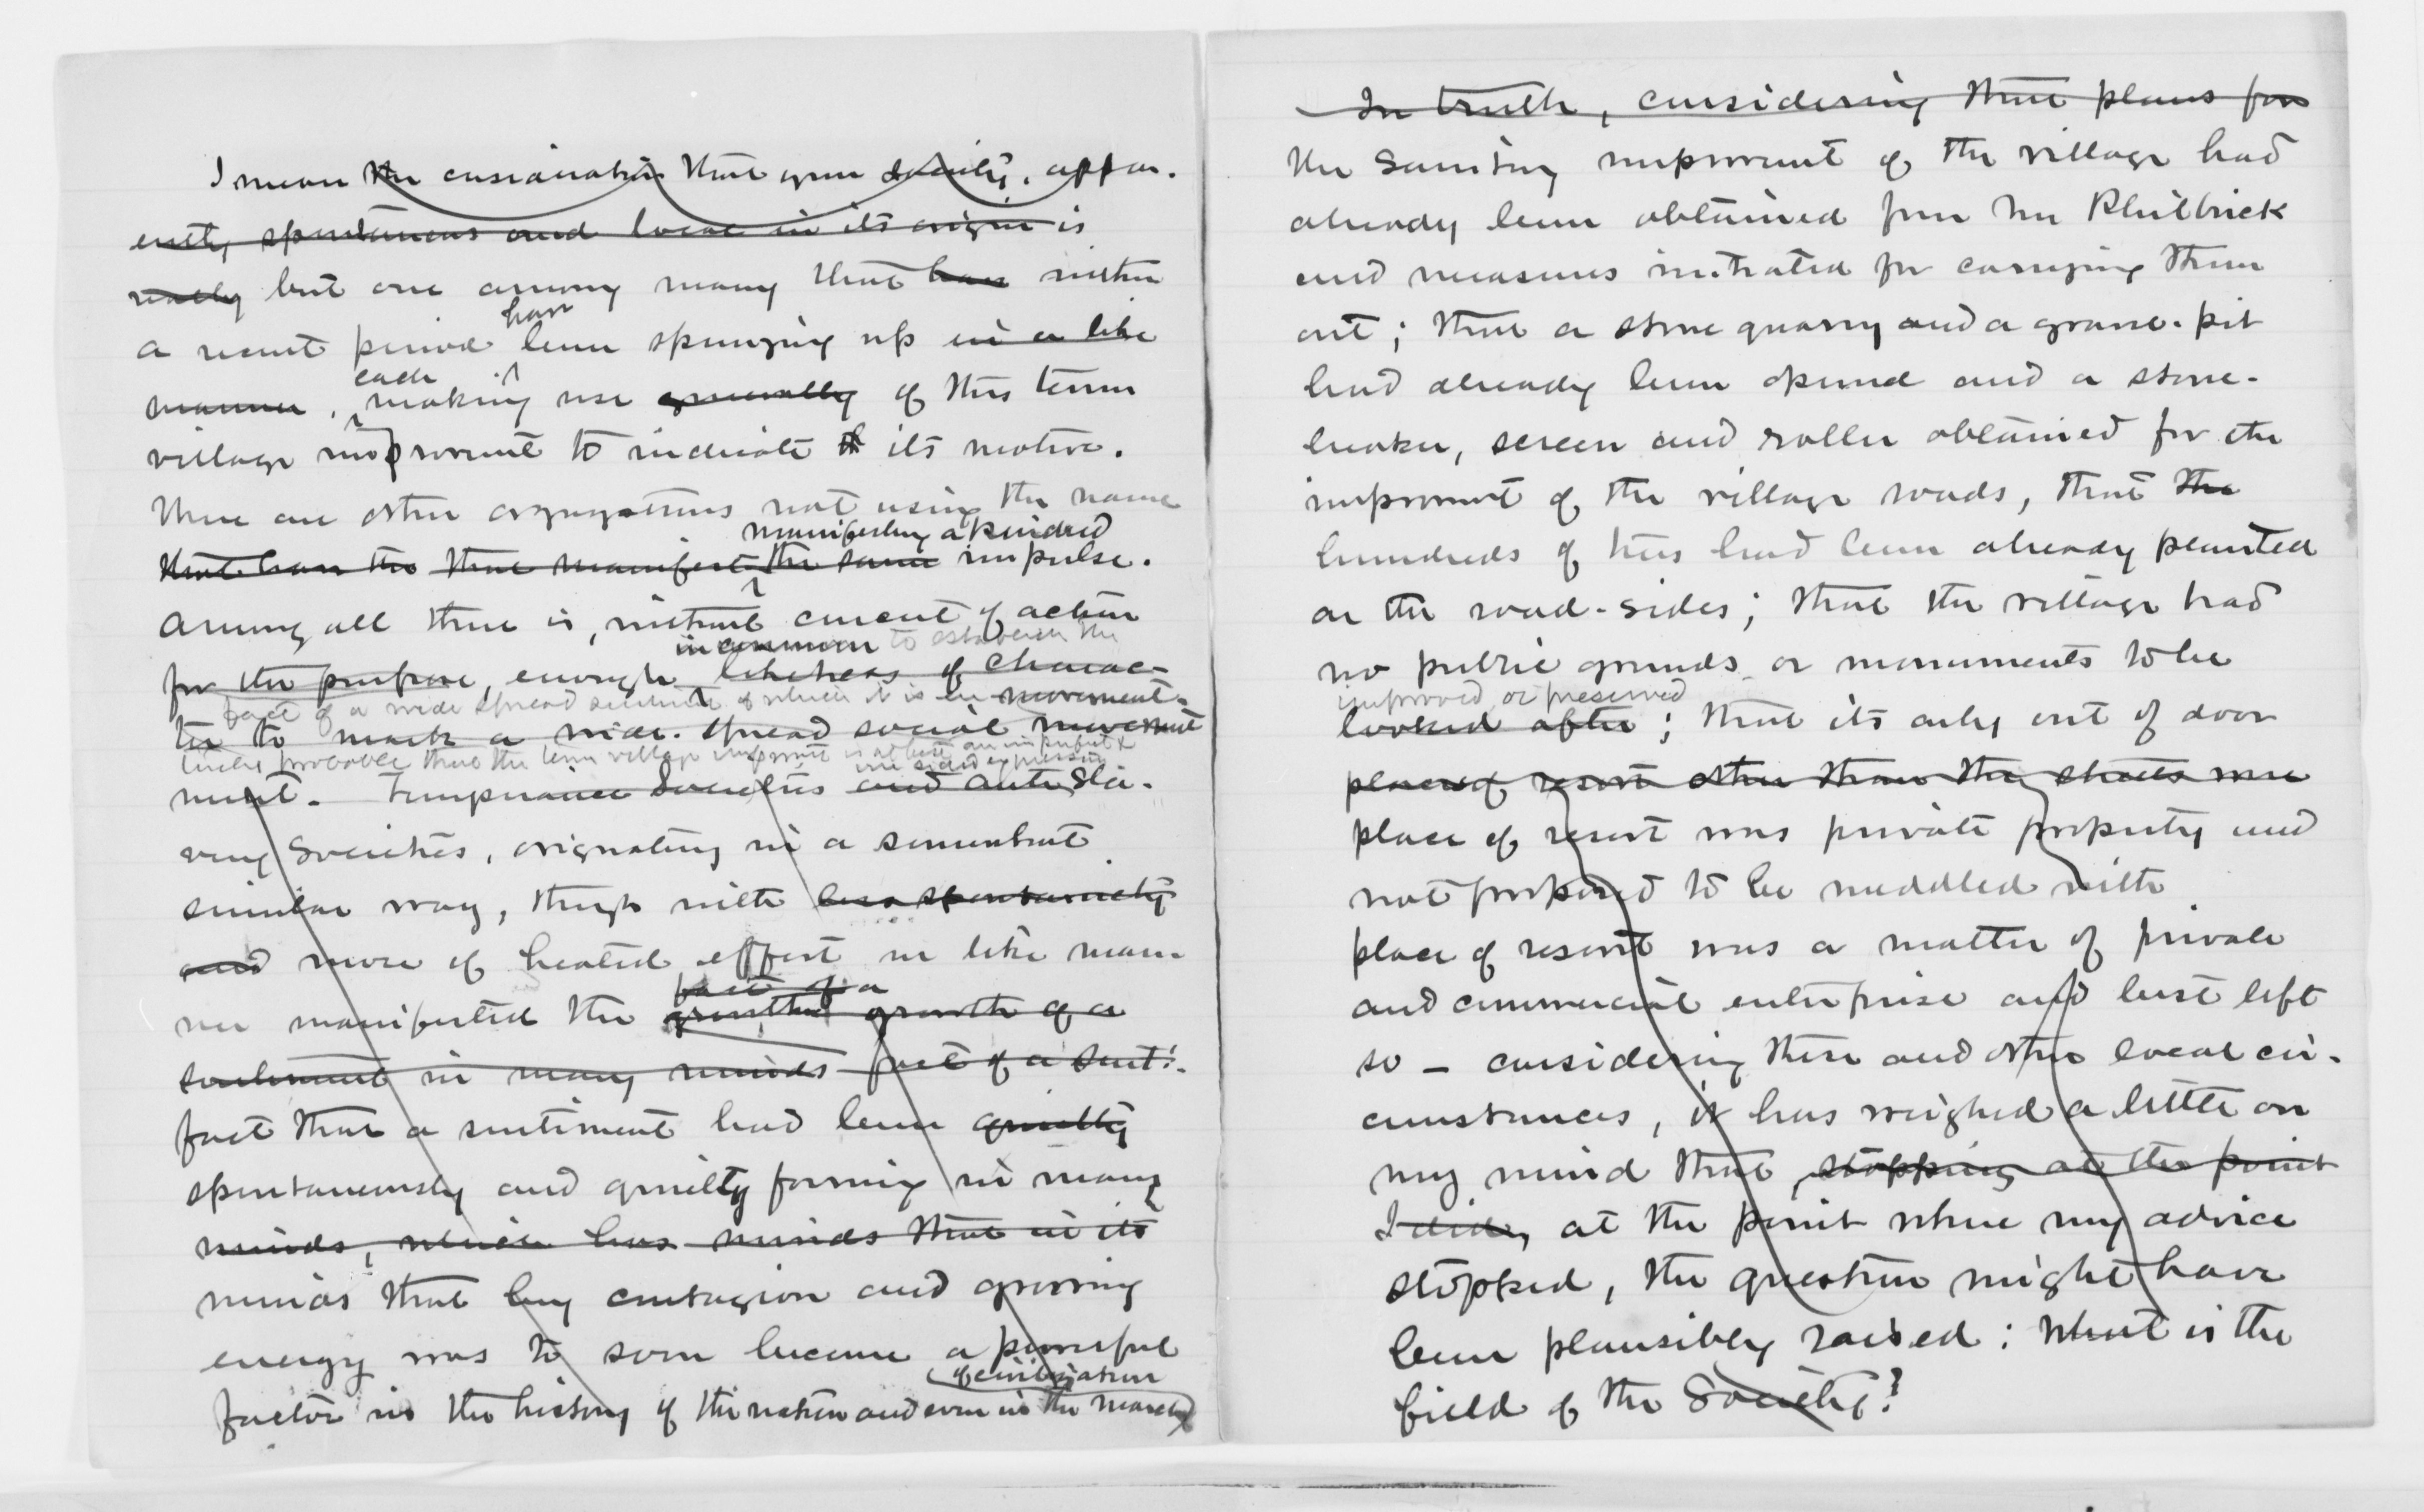 I mean the consideration that your Society, appar-
ently spontaneous and local in its origin is
really but one among many that have within
a recent period have been springing up in a like
manner, each making use generally of this term
village improvement to indicate its motive.
There are other organizations not using the name
manifesting a kindred
that have the that manifest the same impulse.
Among all there is, without concert of action
in common to establish the
for the purpose, enough likeness of charac-
fact of a wide spread sentiment of which it is movement-
ter to mark a wide-spread social movement
probable that the term village improvement is at best an imperfect &
one sided expression
ment. Temperance Societies and anti Sla-
very Societies, originating in a somewhat
similar way, though with less spontaneity
and more of heated effort in like man-
ner manifested the
fact of a
growth growth of a
sentiment in many minds fact of a senti-
fact that a sentiment had been quietly
spontaneously and quietly forming in many
minds, which has minds that in its
minds that by contagion and growing
energy was to soon become a powerful
of civilization
factor in the history of the nation and even in the march
In truth, considering that plans for
the Sanitary improvement of the village had
already been obtained from Mr Philbrick
and measures initiated for carrying them
out; that a stone quarry and a gravel-pit
had already been opened and a stone-
breaker, screen and roller obtained for the
improvement of the village roads, that the
hundreds of trees had been already planted
on the road-sides; that the village had
no public grounds or monuments to be
improved or preserved
looked after; that its only out of door
places of resort other than the streets were
place of resort was private property and
not proposed to be meddled with
place of resort was a matter of private
and commercial enterprise and best left
so - considering these and other local cir-
cumstances, it has weighed a little on
my mind that stopping at the point
I did, at the point where my advice
stopped, the question might have
been plausibly raised: What is the
field of the Society?